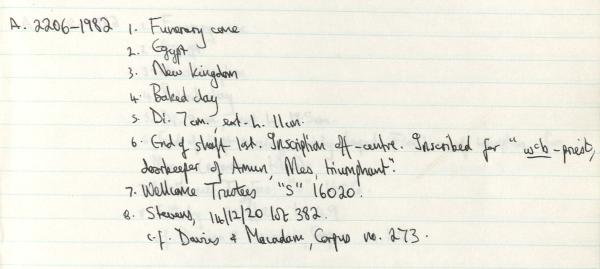 A. 2206-1982 1. Funerary cone
2. Egypt
3. New Kingdom
4. Baked clay
5. Di. 7cm, ext. h. 11cm.
6. End of shaft lost. Inscription off-centre. Inscribed for "wcb-priest,
doorkeeper of Amun, Mes, triumphant".
7. Wellcome Trustees "S" 16020.
8. Stevens, 14/12/20 lot 382.
c.f. Davies & Macadam, Corpus no. 273.